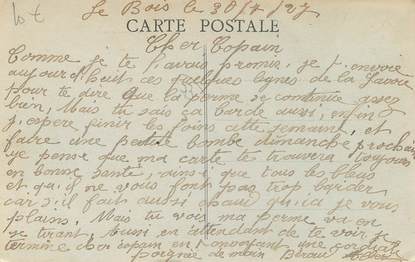 lot
Le Bois le 30/7/27
CARTE POSTALE
Cher Copain
Comme je te l'avais promis, je t'envoie
aujourd'hui ces quelques lignes de la Savoie
pour te dire que la perme se continue assez
bien, Mais tu sais ça barde aussi, enfin
j'espère finir les foins cette semaine, et
faire une petite bombe dimanche prochain
je pense que ma carte te trouvera toujours
en bonne santé, ainsi que tous les bleus
et qu'il ne vous font pas trop barder
car s'il fait aussi chaud qu'ici je vous
plains. Mais tu vois ma perme va en
se tirant, aussi en attendant de te voir je
termine cher copain en t'envoyant une cordiale
poignée de main